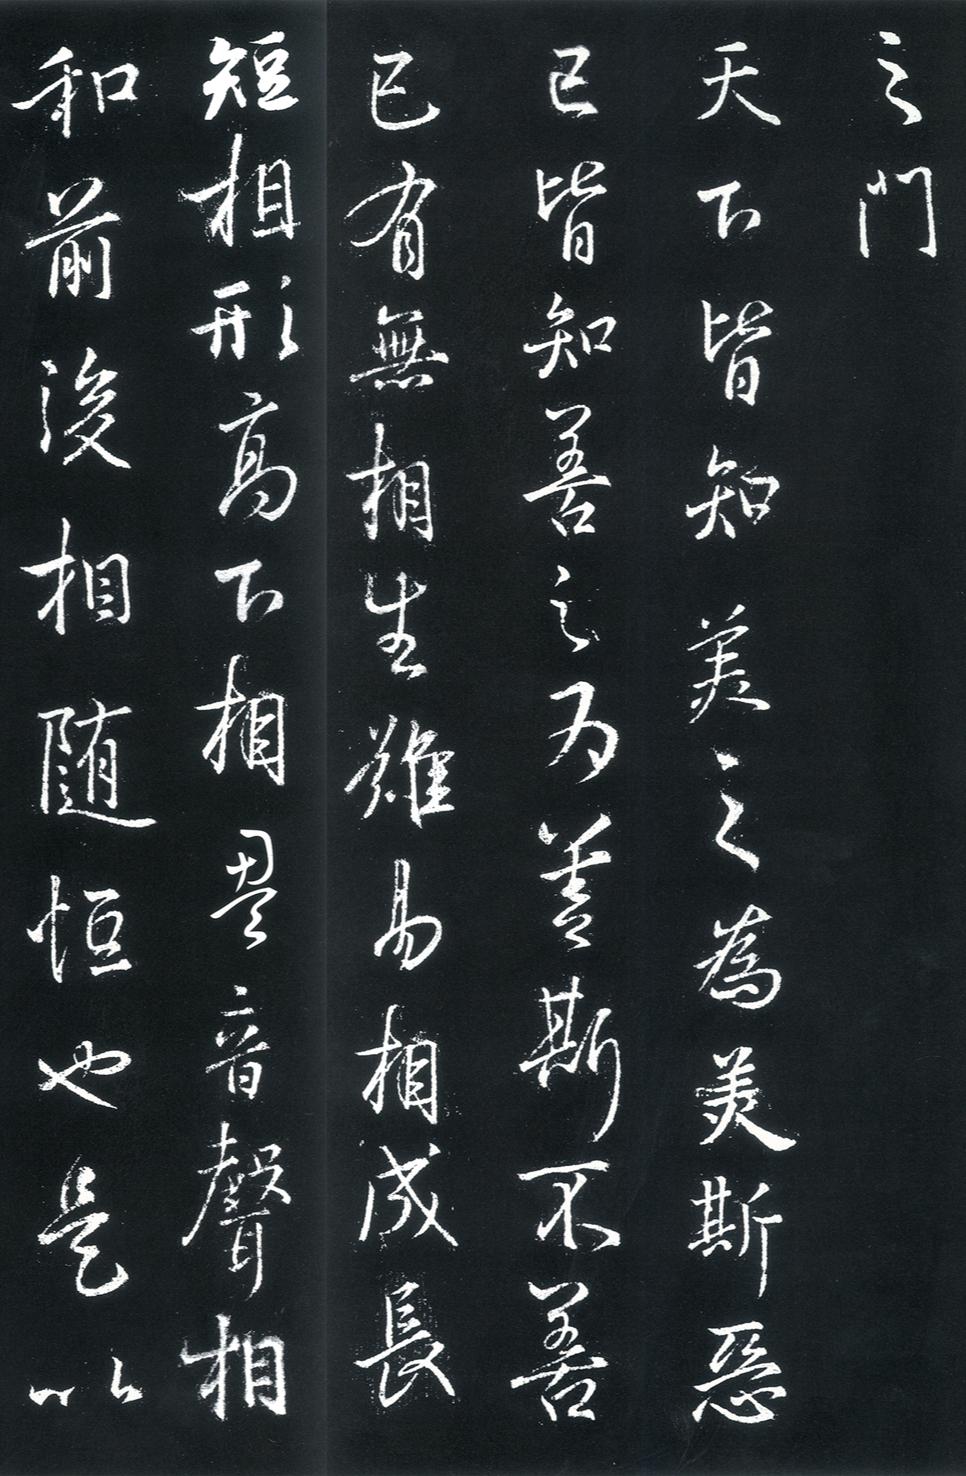 之門
天下皆知美之為美斯惡
已皆知善之为善斯不善
已有無相生難易相成長
短相形高下相盈音聲相
和前後相随恒也是以